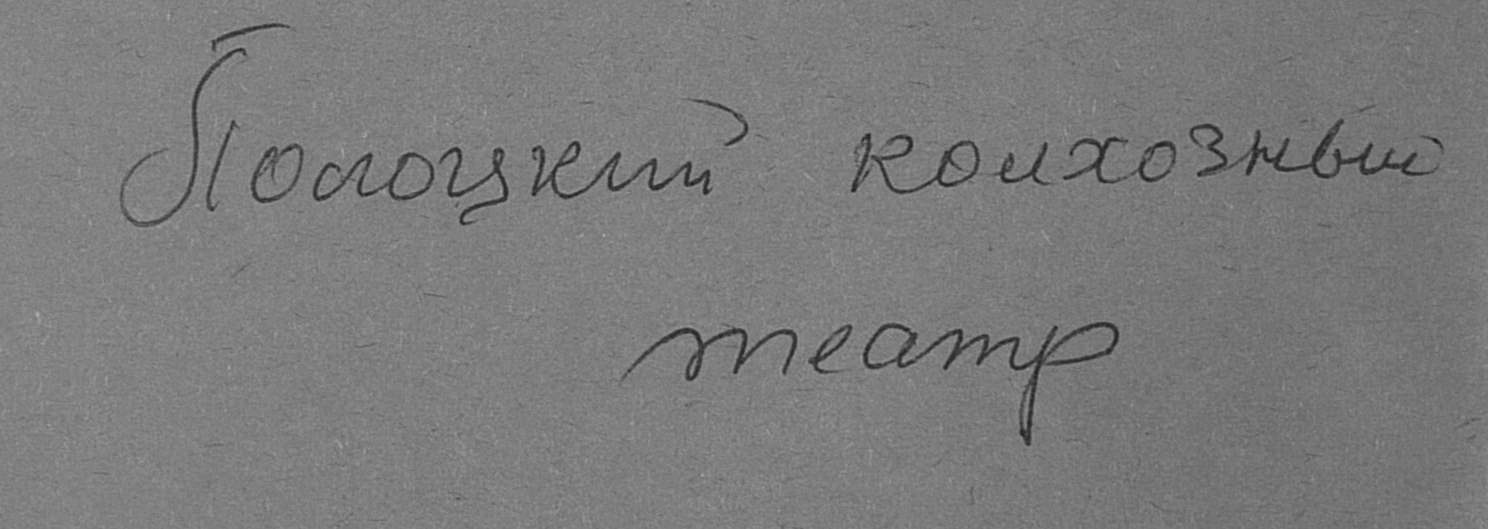 Полоцкий колхозный
театр